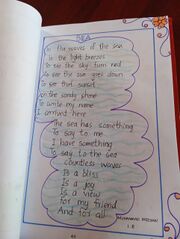 SEA
In the waves of the sea
In the light breezes
To see the sky turn red
To see the sea goes down
To see that sunset
on the sandy shore
To write my name
I arrived here
The sea has something
To say to me
I have something
To say to the sea
Countless waves
Is a bliss
Is a joy
Is a view
for my friend
And for all
MUHAMMAD